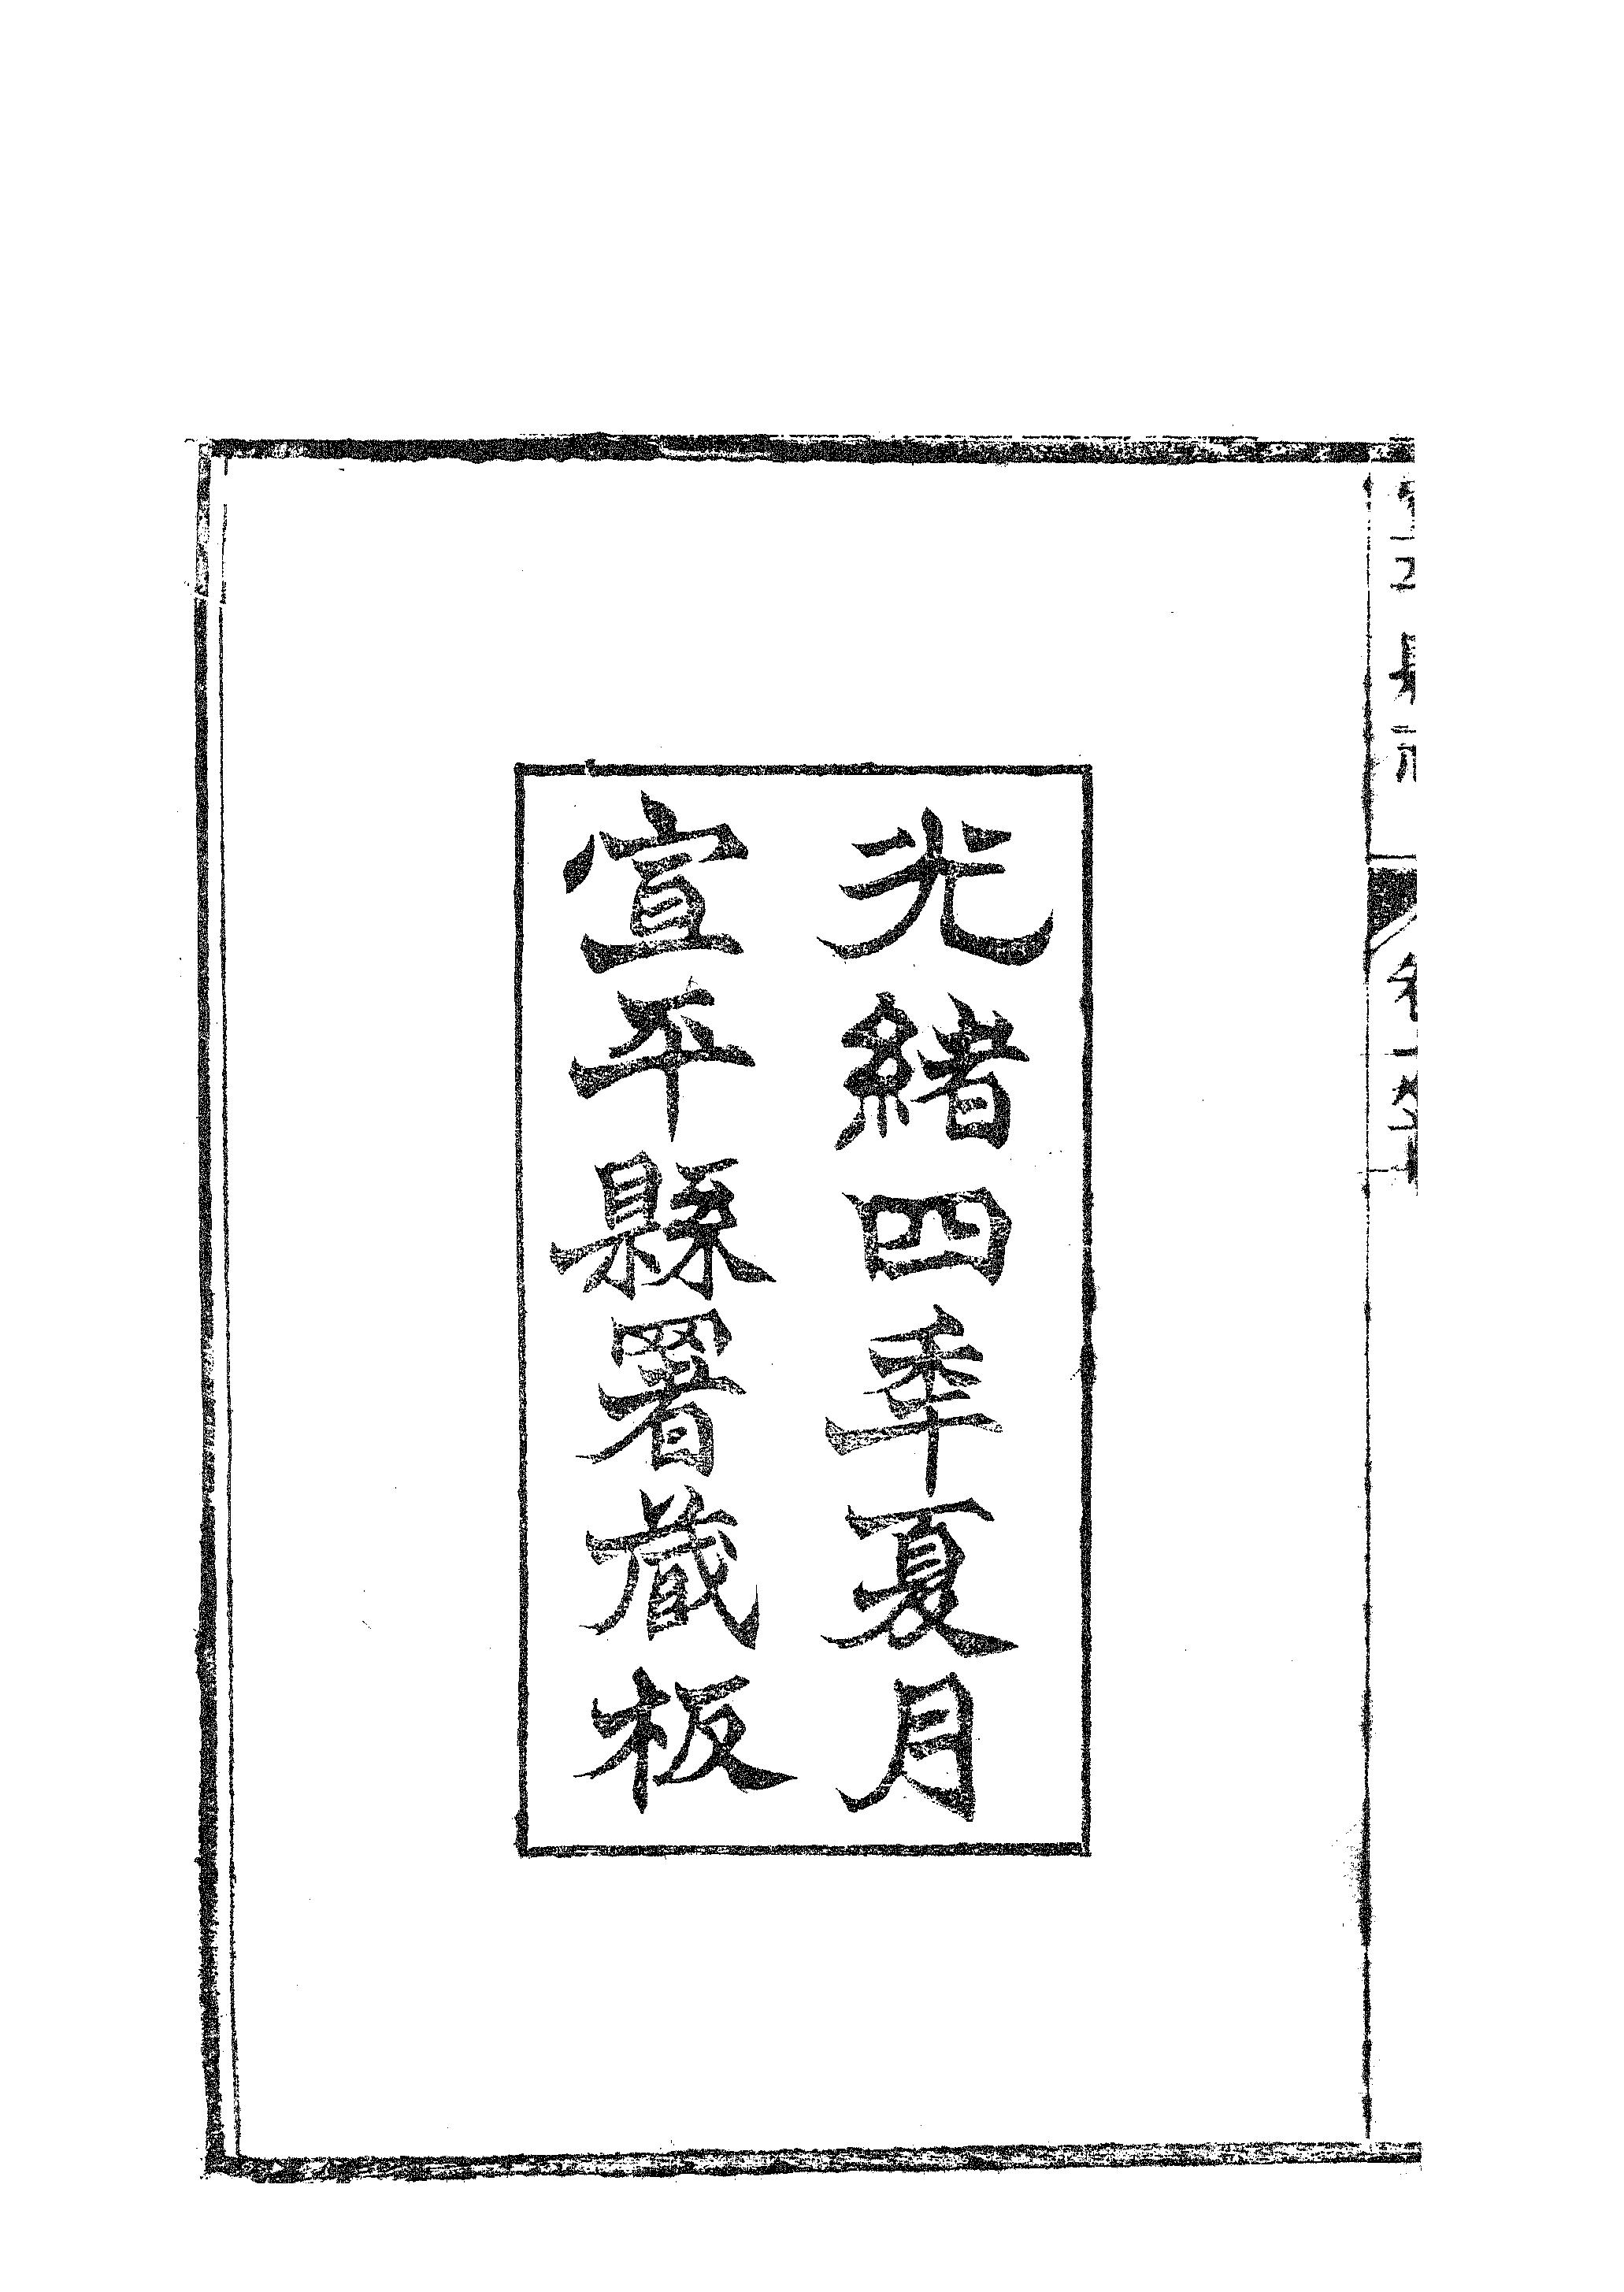 光緒四秊夏月
宣平縣署藏板